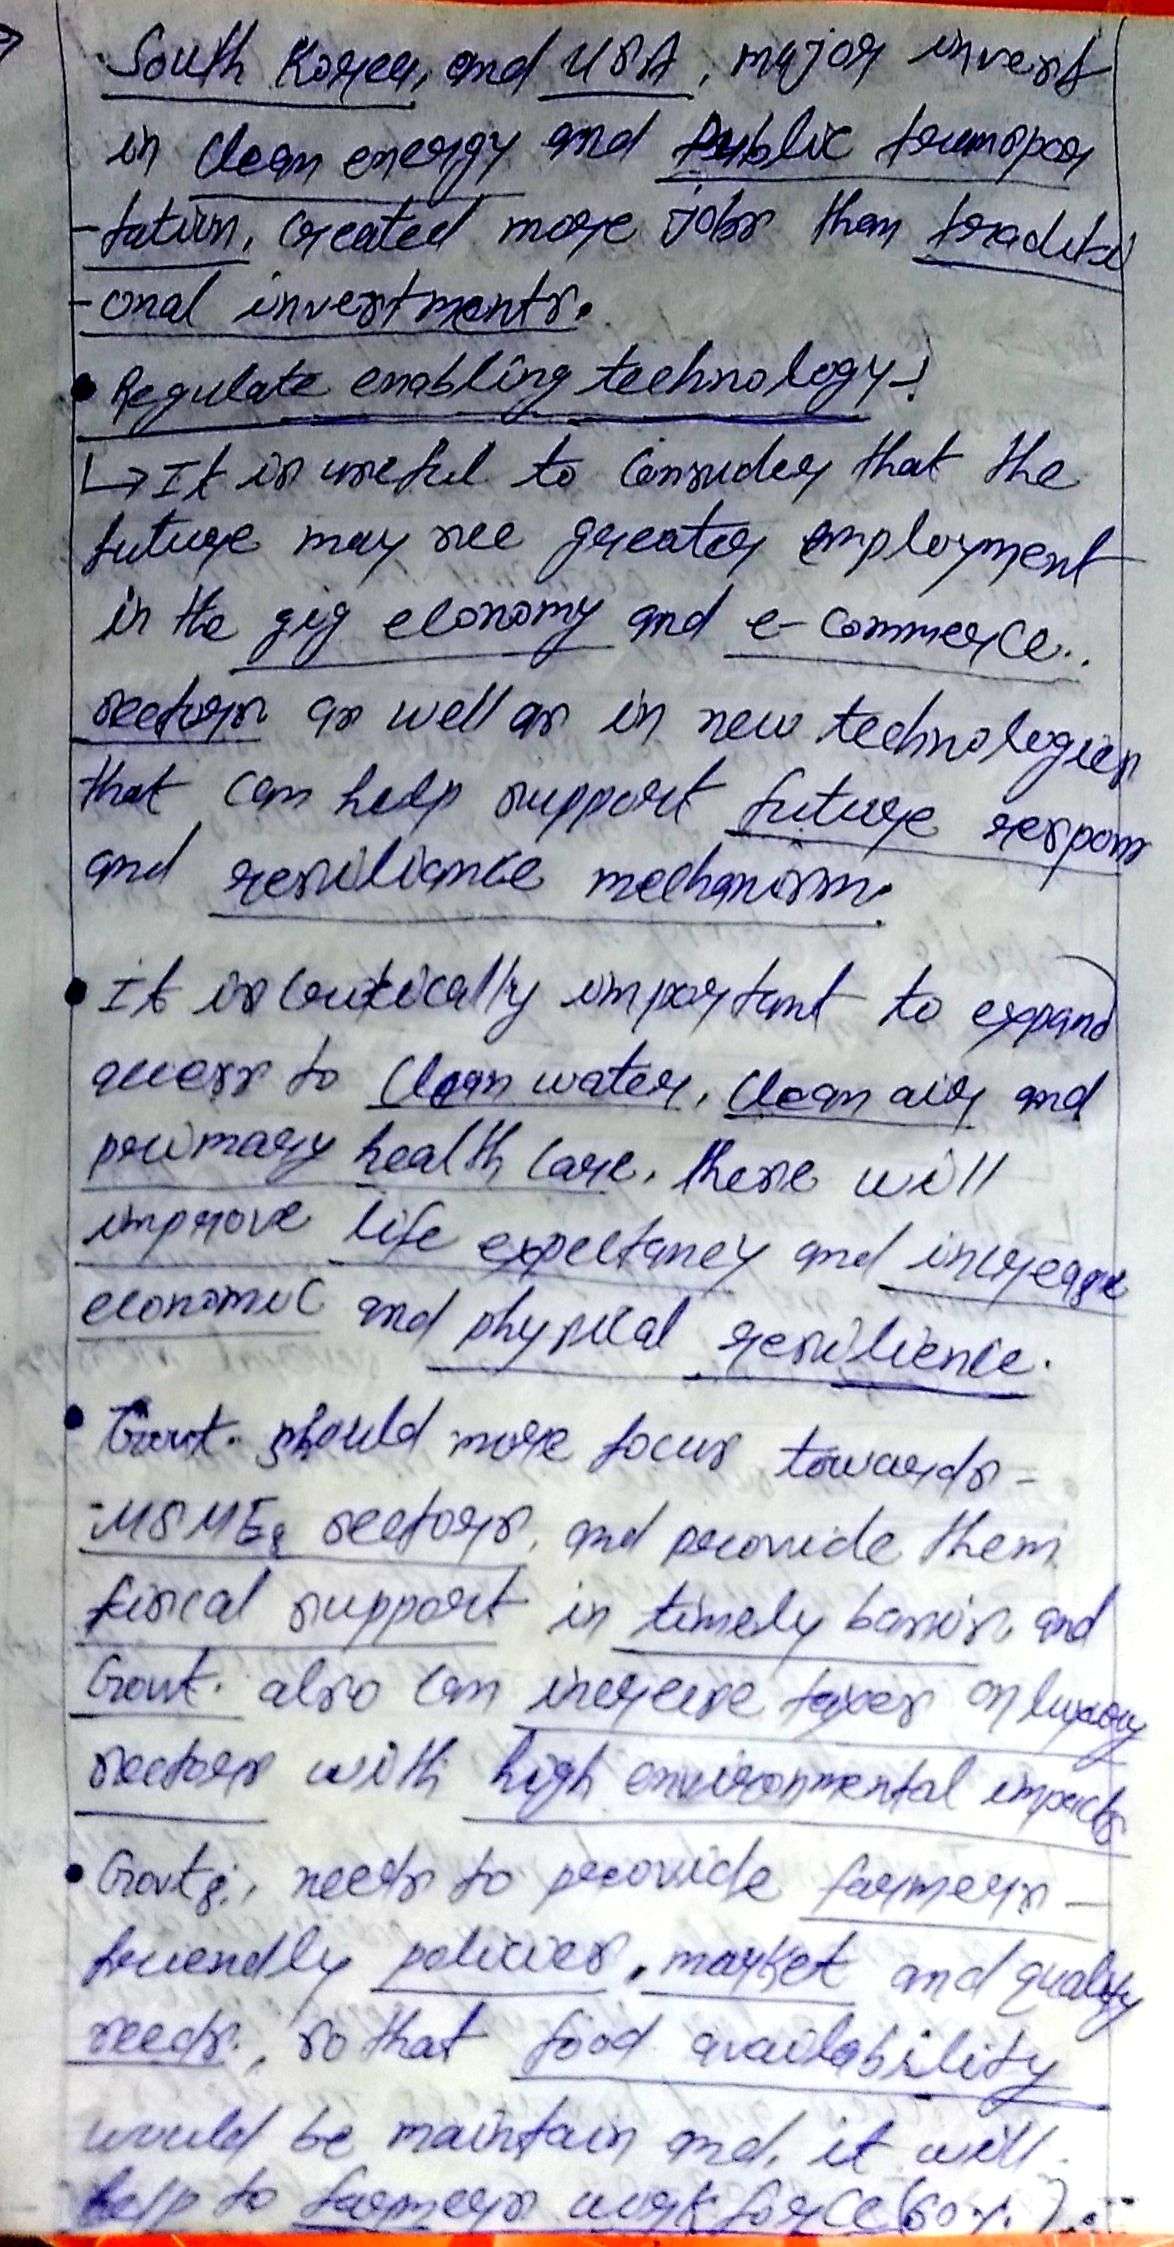 South Korea, and USA, major invest
in clean energy and public transpor
-tation, created more jobs than traditi
-onal investments.
• Regulate enabling technology:
↳ It is useful to consider that the
future may see greater employment
in the gig economy and e-commerce..
sectors as well as in new technologies
that can help support future respons
and resiliance mechanism.
• It is critically important to expand
access to clean water, clean air and
primary health care. these will
improve life expectancy and increase
economic and physical resilience.
• Govt. should more focus towards -
-MSMEs sectors, and provide them
fiscal support in timely basis, and
Govt. also can increase taxes on luxury
sectors with high environmental impacts
• Govts., needs to provide farmers -
friendly policies, market and quality
seeds, so that food availability
would be maintain and, it will
help to farmers workforce (50%.)